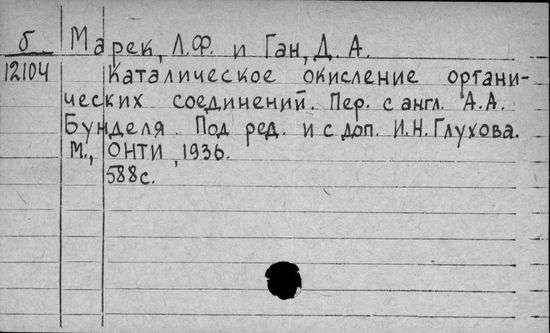 б Марек, Л.Ф. и Ган, Д. А.
12104 Каталическое окисление органи-
ческих соединений. Пер. с англ. А.А.
Бунделя. Под ред. и с доп. И.Н. Глухова.
М., ОНТИ, 1936.
588с.